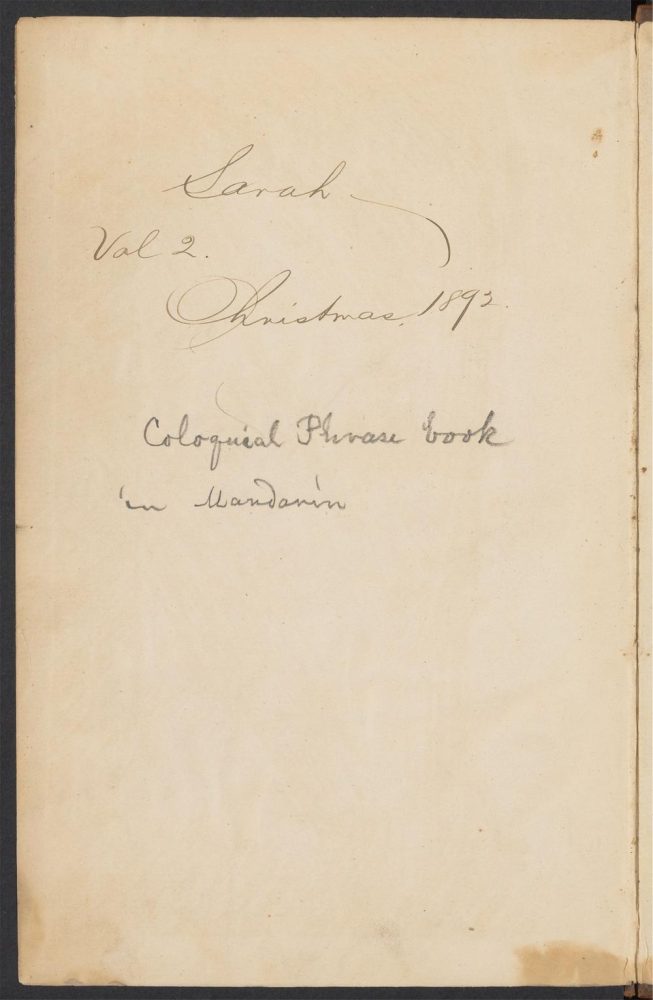 Sarah
Vol 2.
Christmas, 1893.
Coloquial Phrase book
in Mandarin